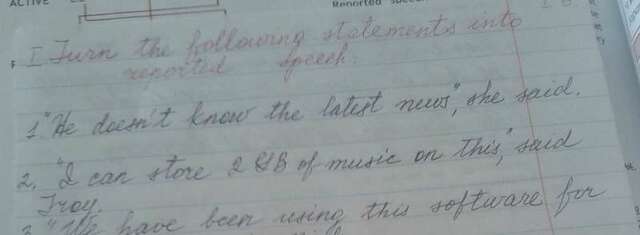 ACTIVE
Reported
I Turn the following statements into
reported speech.
1. "He doesn't know the latest news", she said.
2. "I can store 2 GB of music on this", said
Troy.
3. "We have been using this software for